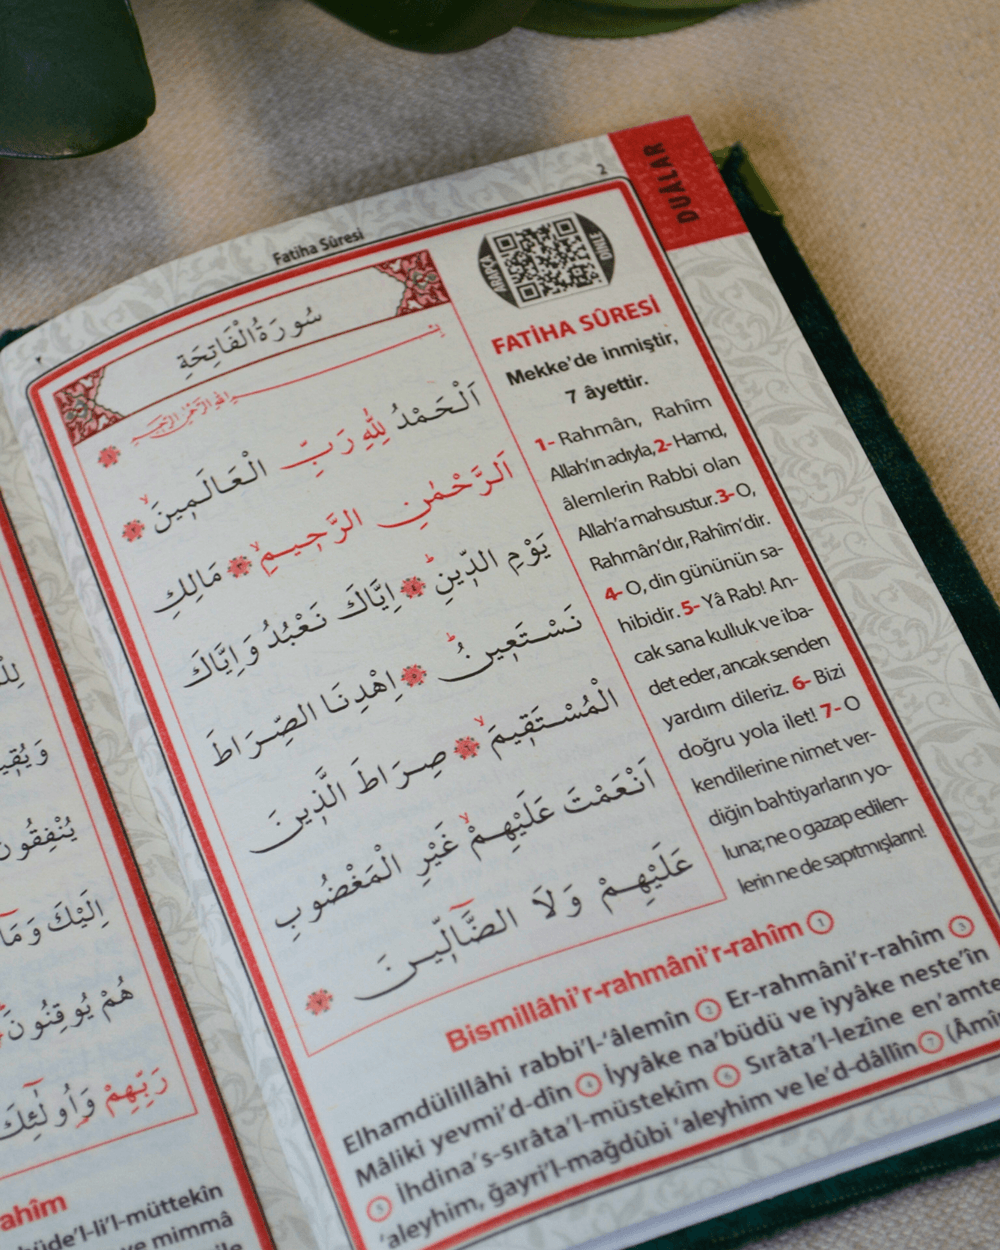 DUALAR
2
Fatiha Sûresi
٢
سُورَةُ الْفَاتِحَةِ
ARAPÇA
DİNLE
بِسْــــمِ اللهِ الرَّحْمٰنِ الرَّحِيمِ
اَلْحَمْدُ لِلّٰهِ رَبِّ الْعَالَمِينَۙ ﴿٢﴾
اَلرَّحْمٰنِ الرَّحِيمِۙ ﴿٣﴾ مَالِكِ
يَوْمِ الدِّينِۜ ﴿٤﴾ اِيَّاكَ نَعْبُدُ وَاِيَّاكَ
نَسْتَعِينُۜ ﴿٥﴾ اِهْدِنَا الصِّرَاطَ
الْمُسْتَقِيمَۙ ﴿٦﴾ صِرَاطَ الَّذِينَ
اَنْعَمْتَ عَلَيْهِمْۙ غَيْرِ الْمَغْضُوبِ
عَلَيْهِمْ وَلَا الضَّٓالِّينَ ﴿٧﴾
FATİHA SÛRESİ
Mekke'de inmiştir,
7 âyettir.
1- Rahmân, Rahîm
Allah'ın adıyla, 2- Hamd,
âlemlerin Rabbi olan
Allah'a mahsustur. 3- O,
Rahmân'dır, Rahîm'dir.
4- O, din gününün sa-
hibidir. 5- Yâ Rab! An-
cak sana kulluk ve iba-
det eder, ancak senden
yardım dileriz. 6- Bizi
doğru yola ilet! 7- O
kendilerine nimet ver-
diğin bahtiyarların yo-
luna; ne o gazap edilen-
lerin ne de sapıtmışların!
Bismillâhi'r-rahmâni'r-rahîm 1
Elhamdülillâhi rabbi'l-'âlemîn 2 Er-rahmâni'r-rahîm 3
Mâliki yevmi'd-dîn 4 İyyâke na'büdü ve iyyâke neste'în
5 İhdina's-sırâta'l-müstekîm 6 Sırâta'l-lezîne en'amte
'aleyhim, ğayri'l-mağdûbi 'aleyhim ve le'd-dâllîn 7 (Âmîn
وَيُقِي
يُنْفِقُونَ
اِلَيْكَ وَمَا
هُمْ يُوقِنُونَ
رَبِّهِمْ وَاُولٰٓئِكَ
ahîm
hüde'l-li'l-müttekîn
ve mimmâ